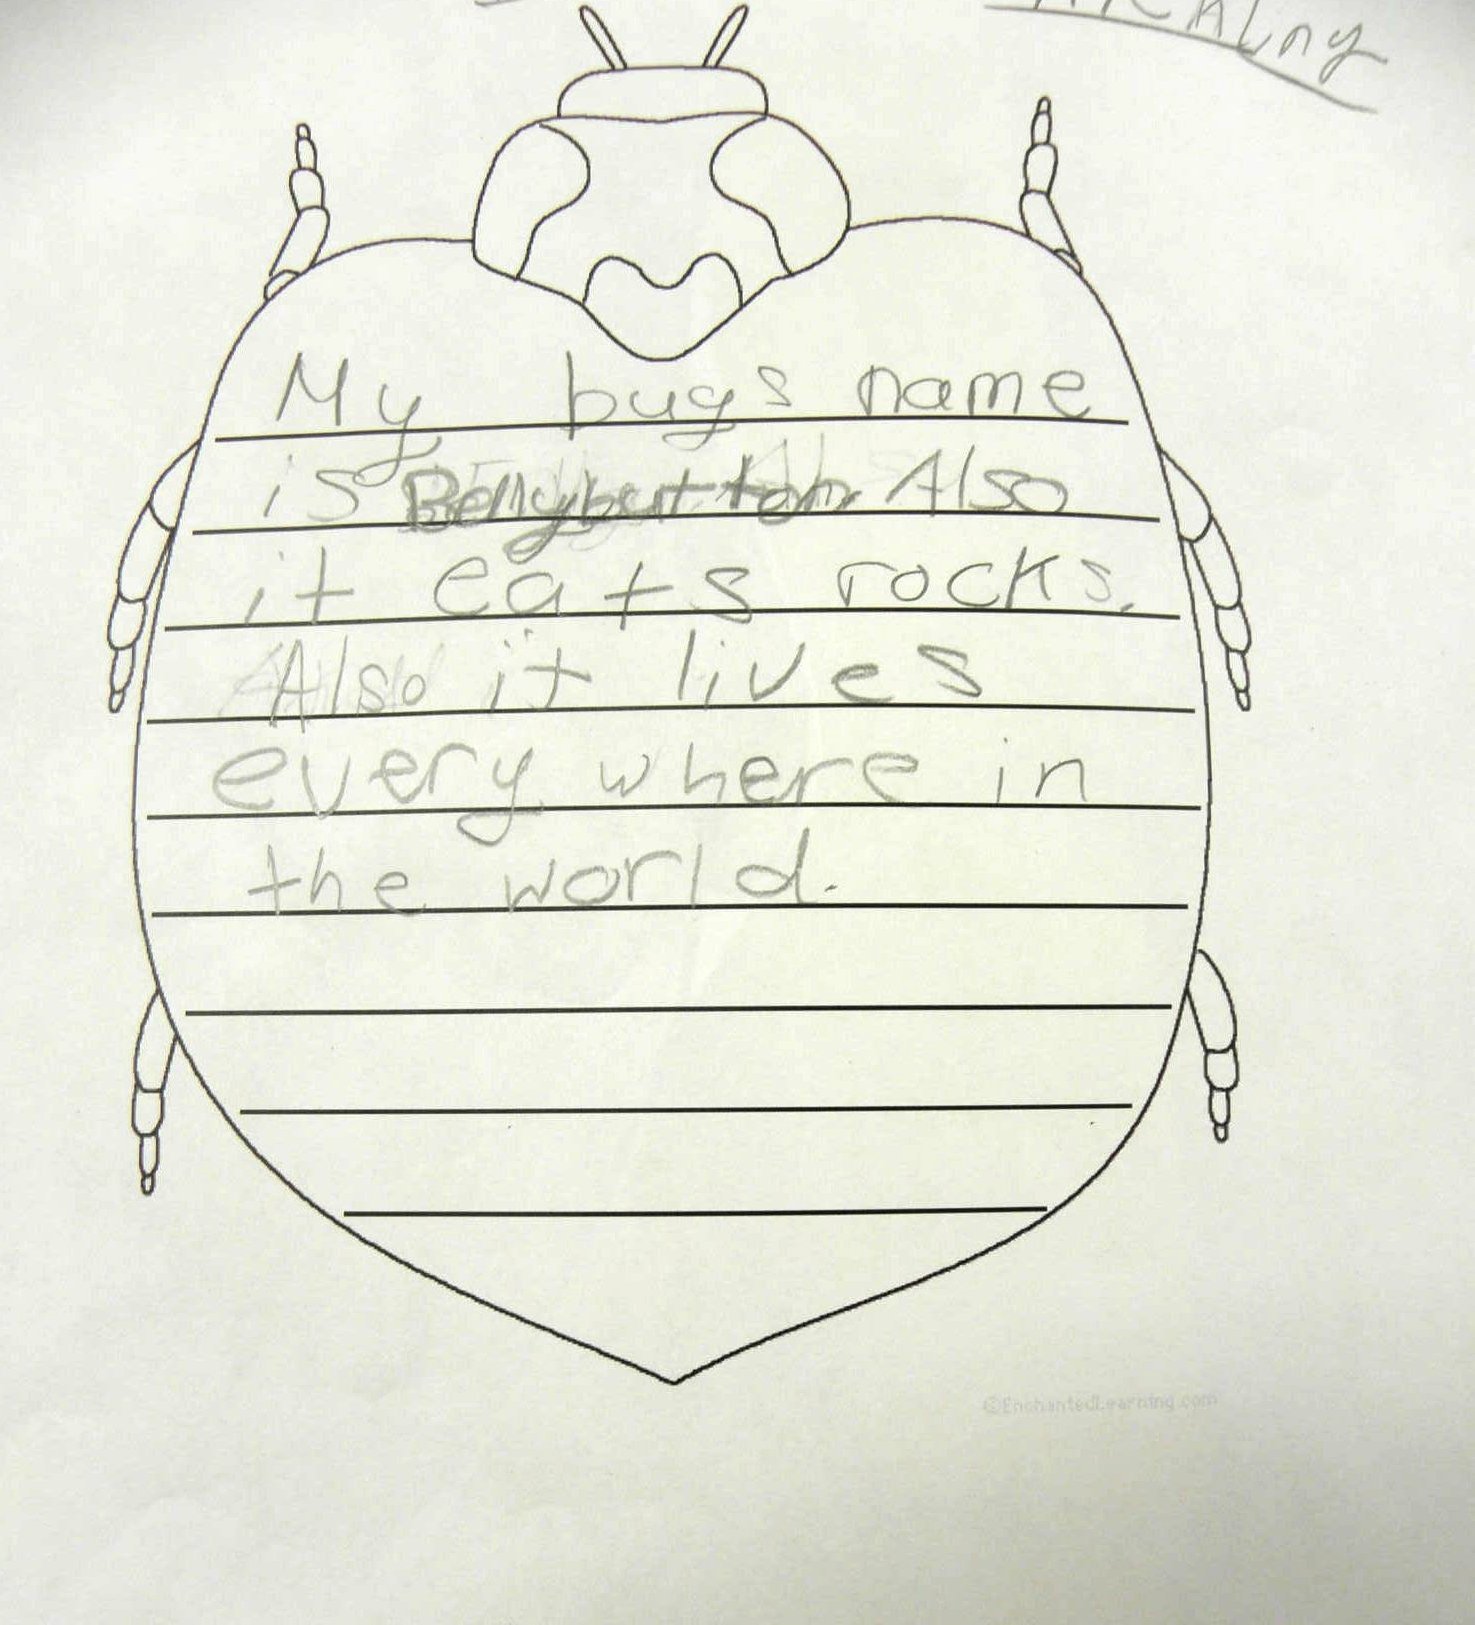 My bugs name
is Bellybutton Also
it eats rocks.
Also it lives
every where in
the world.
©EnchantedLearning.com